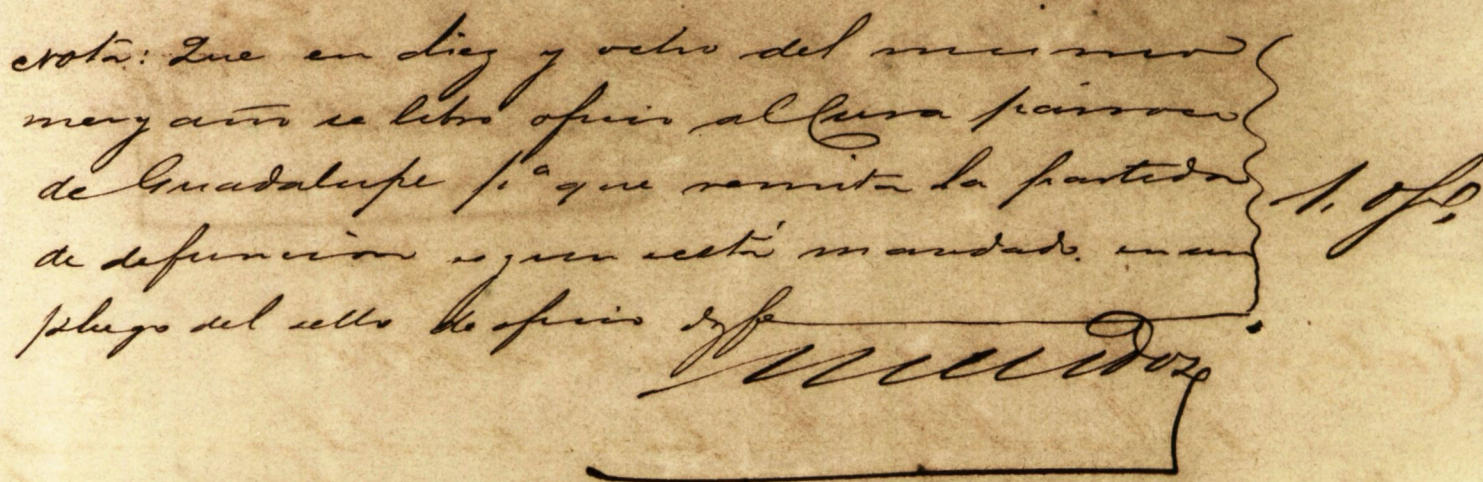 Nota: Que en diez y ocho del mismo
mes y año se libro oficio al Cura párroco
de Guadalupe pª que remita la partida
de defunción segun está mandado. en un
pliego del sello de oficio doy fe
1. of.
Mendoz